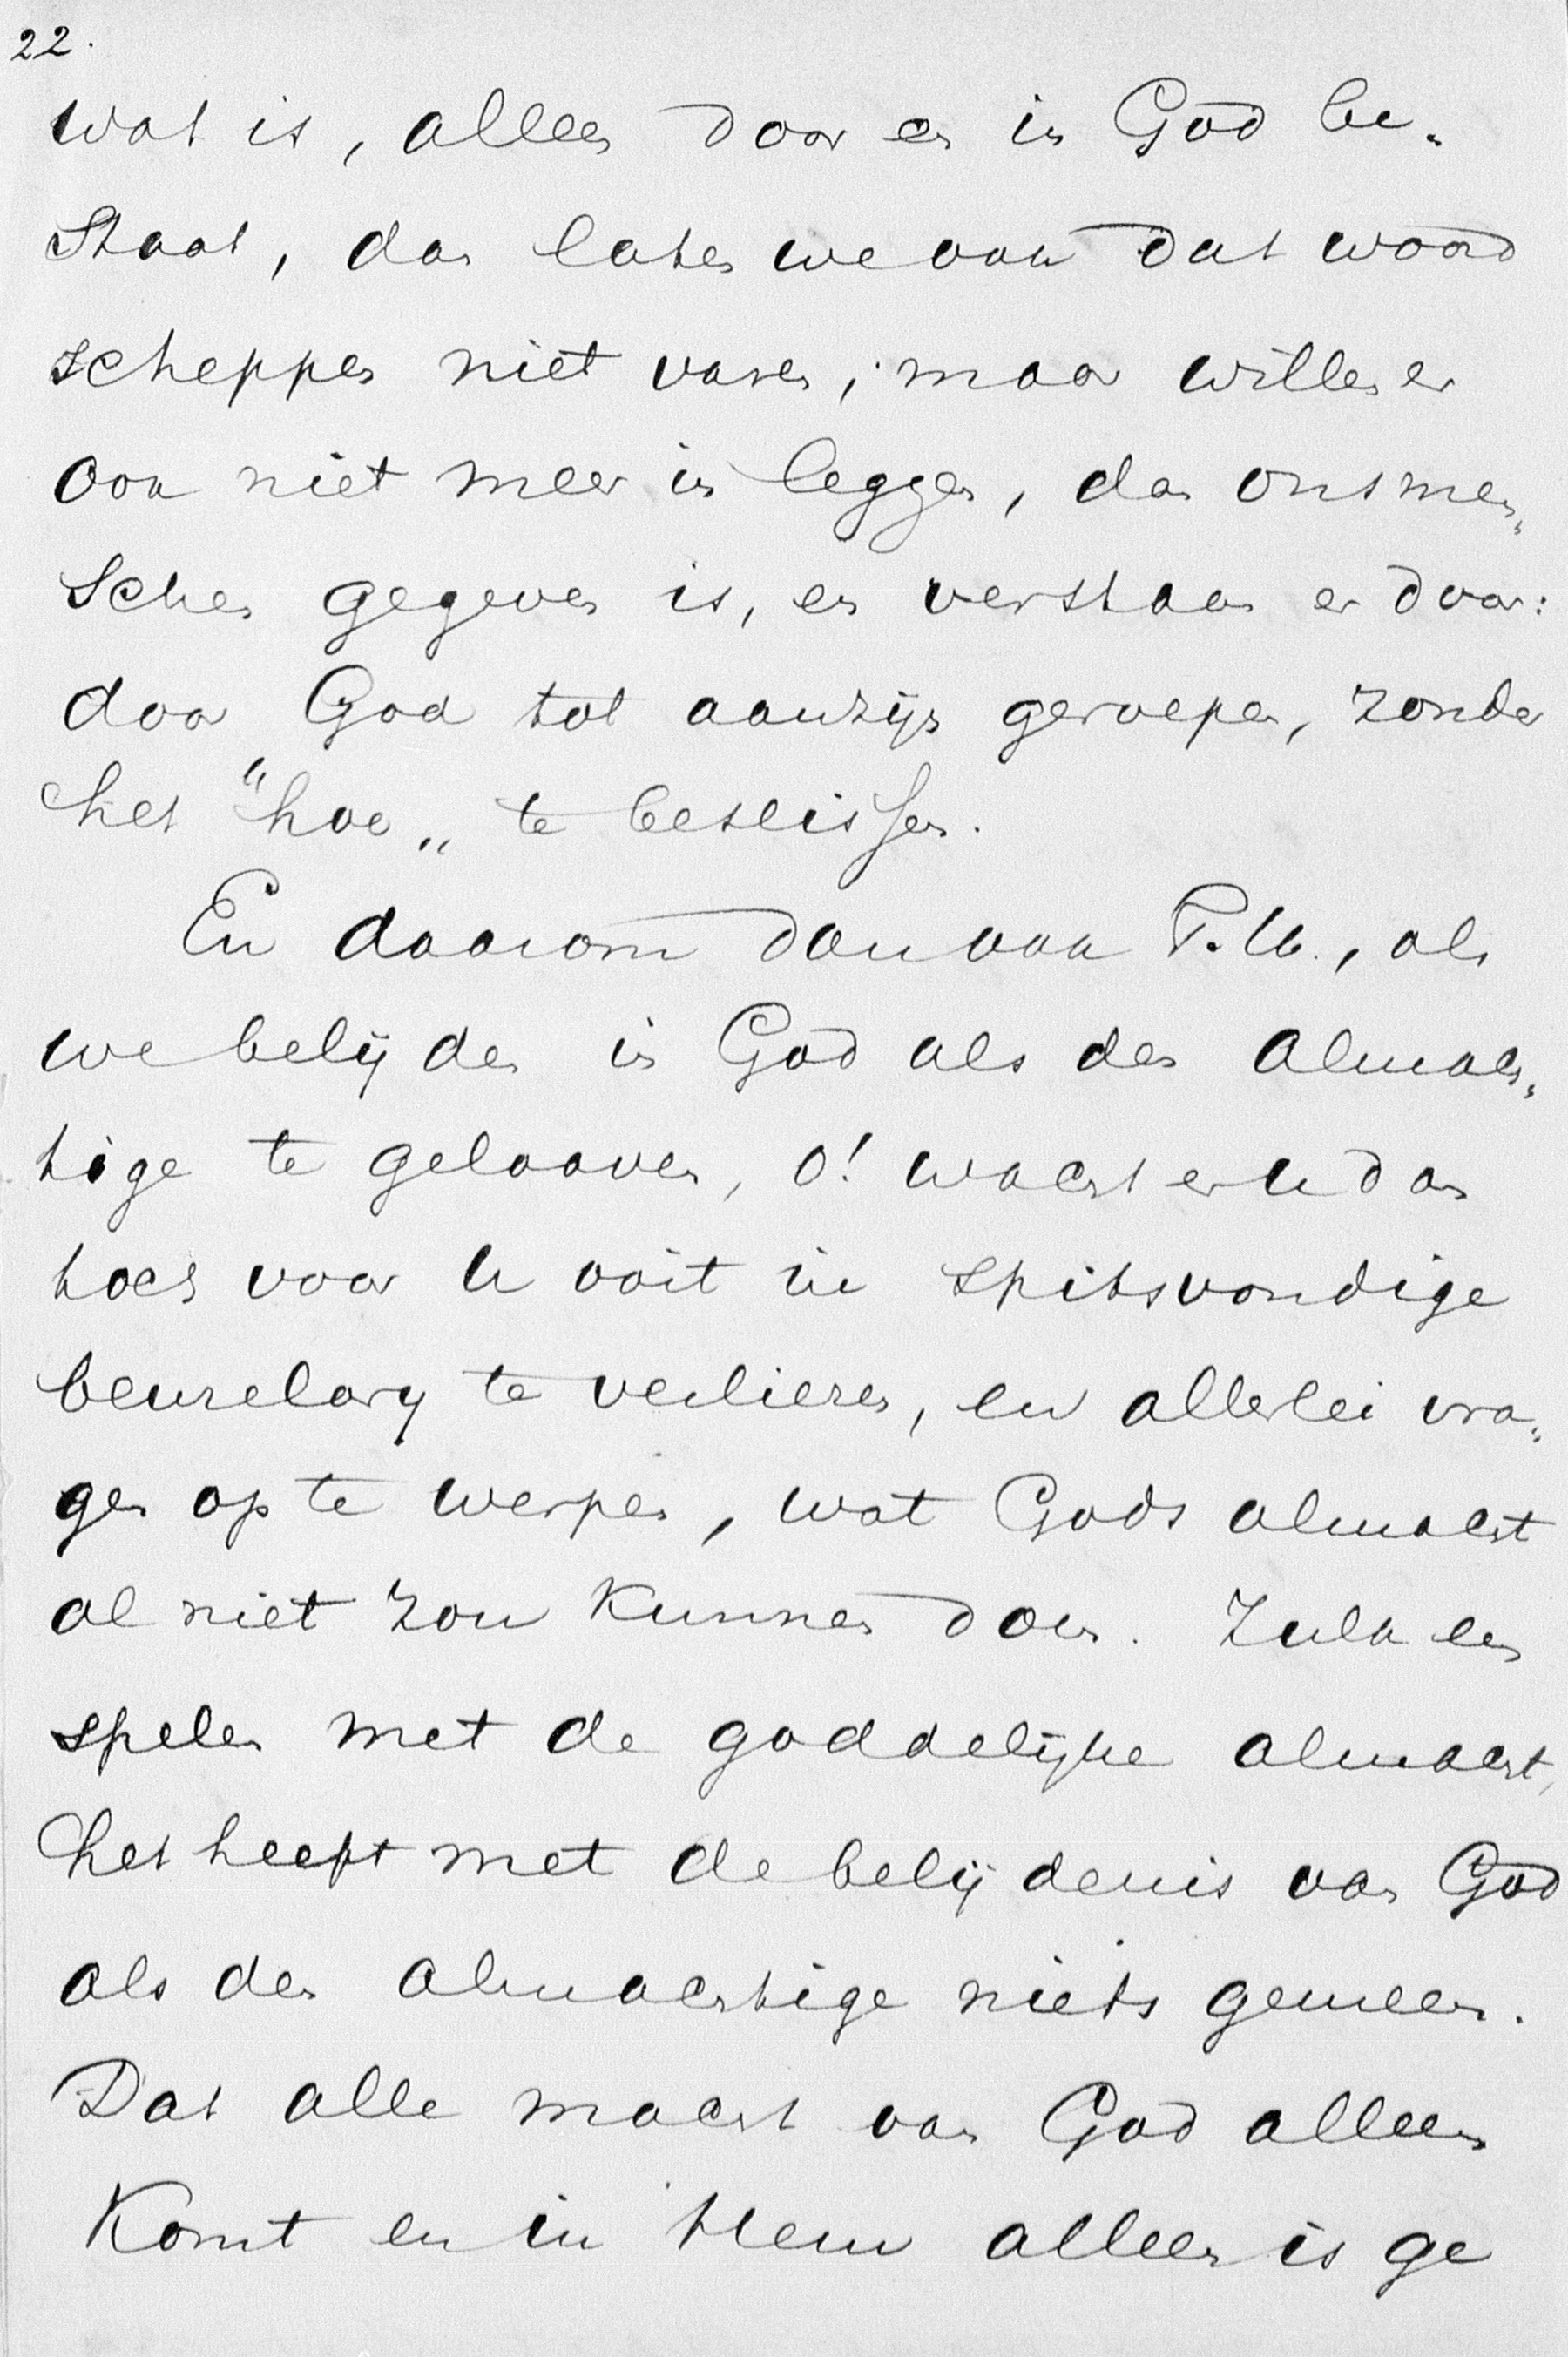 22.
wat is, alleen door en in God be-
staat, dan laten we ook dat woord
scheppen niet varen; maar willen er
ook niet meer in leggen, dan ons men„
schen gegeven is, en verstaan er door:
door God tot aanzijn geroepen, zonder
het "hoe„ te beslissen.
En daarom dan ook T. U., als
we belijden in God als den Almach„
tige te gelooven, o! wacht er u dan
toch voor U ooit in spitsvondige
beuzelary te verliezen, en allerlei vra„
gen op te werpen, wat Gods almacht
al niet zou kunnen doen. Zulk een
spelen met de goddelijke almacht,
het heeft met de belijdenis van God
als den almachtige niets gemeen.
Dat alle macht van God alleen
komt en in Hem alleen is ge